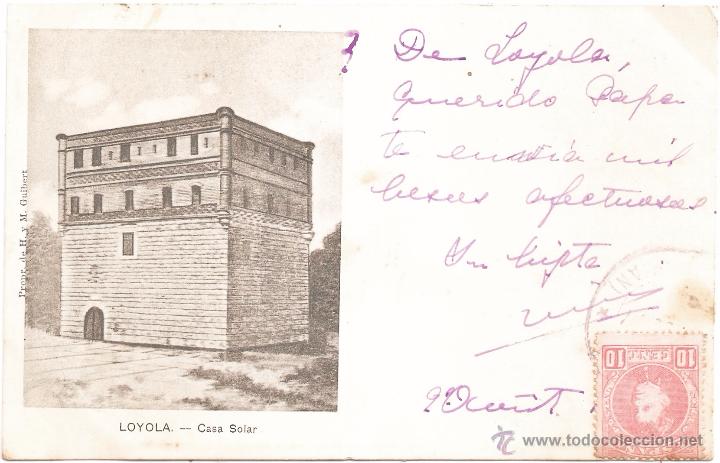 Propr. de H. y M. Guibert
LOYOLA. — Casa Solar
De Loyola,
querido Papa
te envia mil
besos afectuosos
Tu hijita
10 CENT. 10
todocoleccion
www.todocoleccion.net